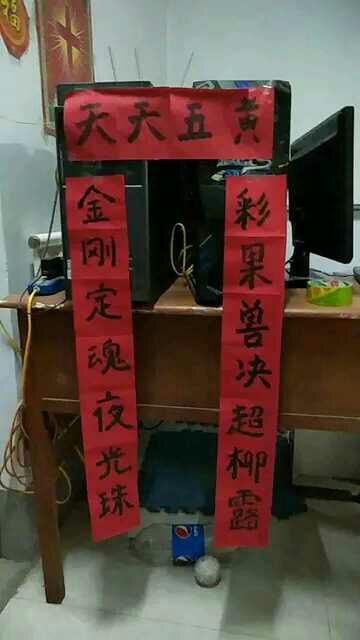 黄五天天
彩果兽决超柳露
金刚定魂夜光珠
福